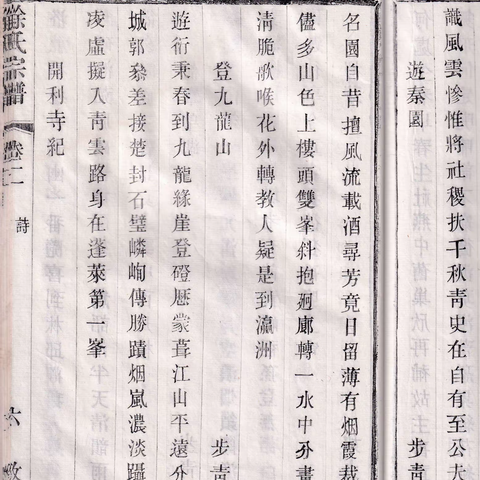 讖風雲慘惟將社稷扶千秋靑史在自有至公夫
遊秦園 步靑
名園自昔擅風流載酒尋芳竟日留薄有烟霞裁
儘多山色上樓頭雙峯斜抱廻廊轉一水中分畫
淸脆歌喉花外轉教人疑是到瀛洲
登九龍山 步靑
遊衍秉春到九龍緣崖登磴歷蒙葺江山平遠分
城郭叅差接楚封石壁嶙峋傳勝蹟烟嵐濃淡躡
凌虛擬入靑雲路身在蓬萊第一峯
開利寺紀
徐氏宗譜 卷二 詩 六 敦